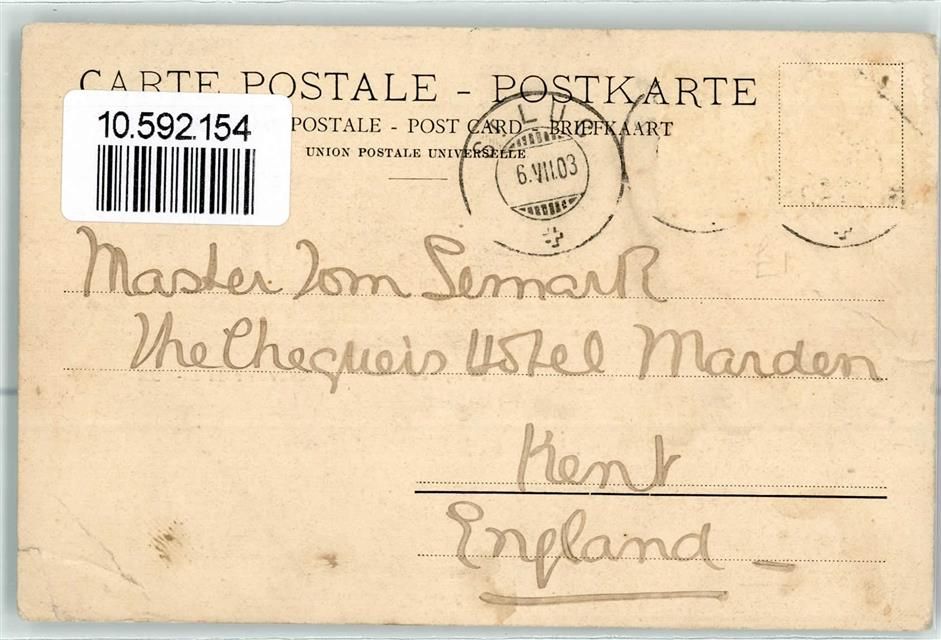 CARTE POSTALE - POSTKARTE
10.592.154
POSTALE - POST CARD - BRIEFKAART
UNION POSTALE UNIVERSELLE
6.VII.03
Master Tom Semark
The Chequers Hotel Marden
Kent
England